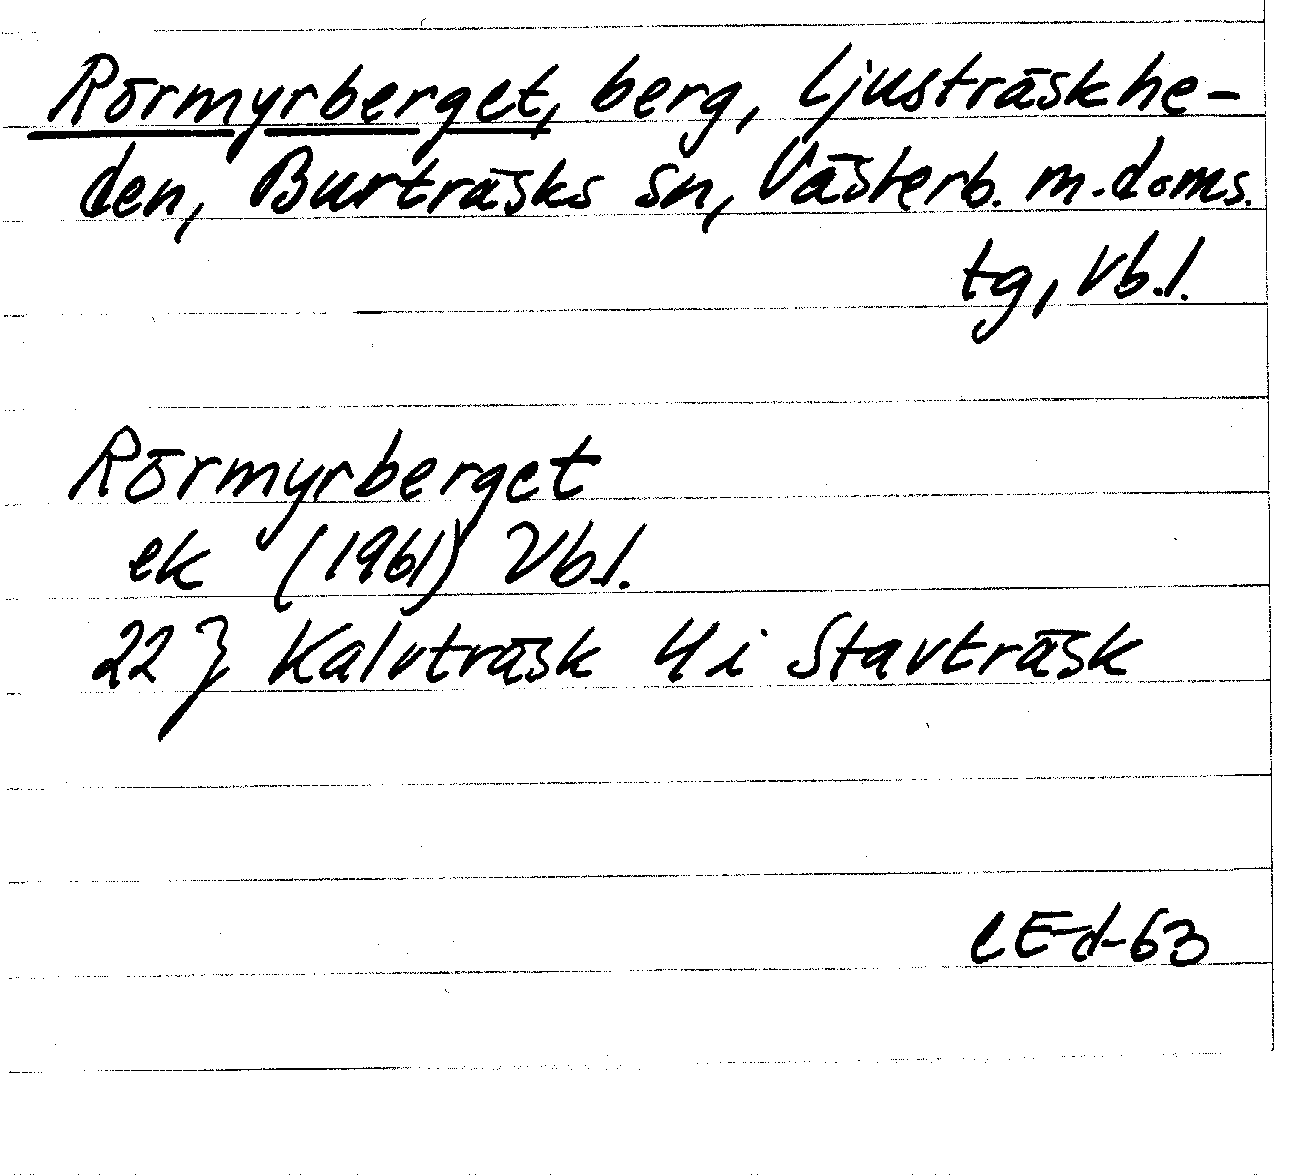 Rörmyrberget, berg, Ljusträskhe-
den, Burträsks sn, Västerb. m. doms.
tg, Vb.l.
Rörmyrberget
ek (1961) Vb.l.
22 J Kalvträsk 4 i Stavträsk
LE-d-63